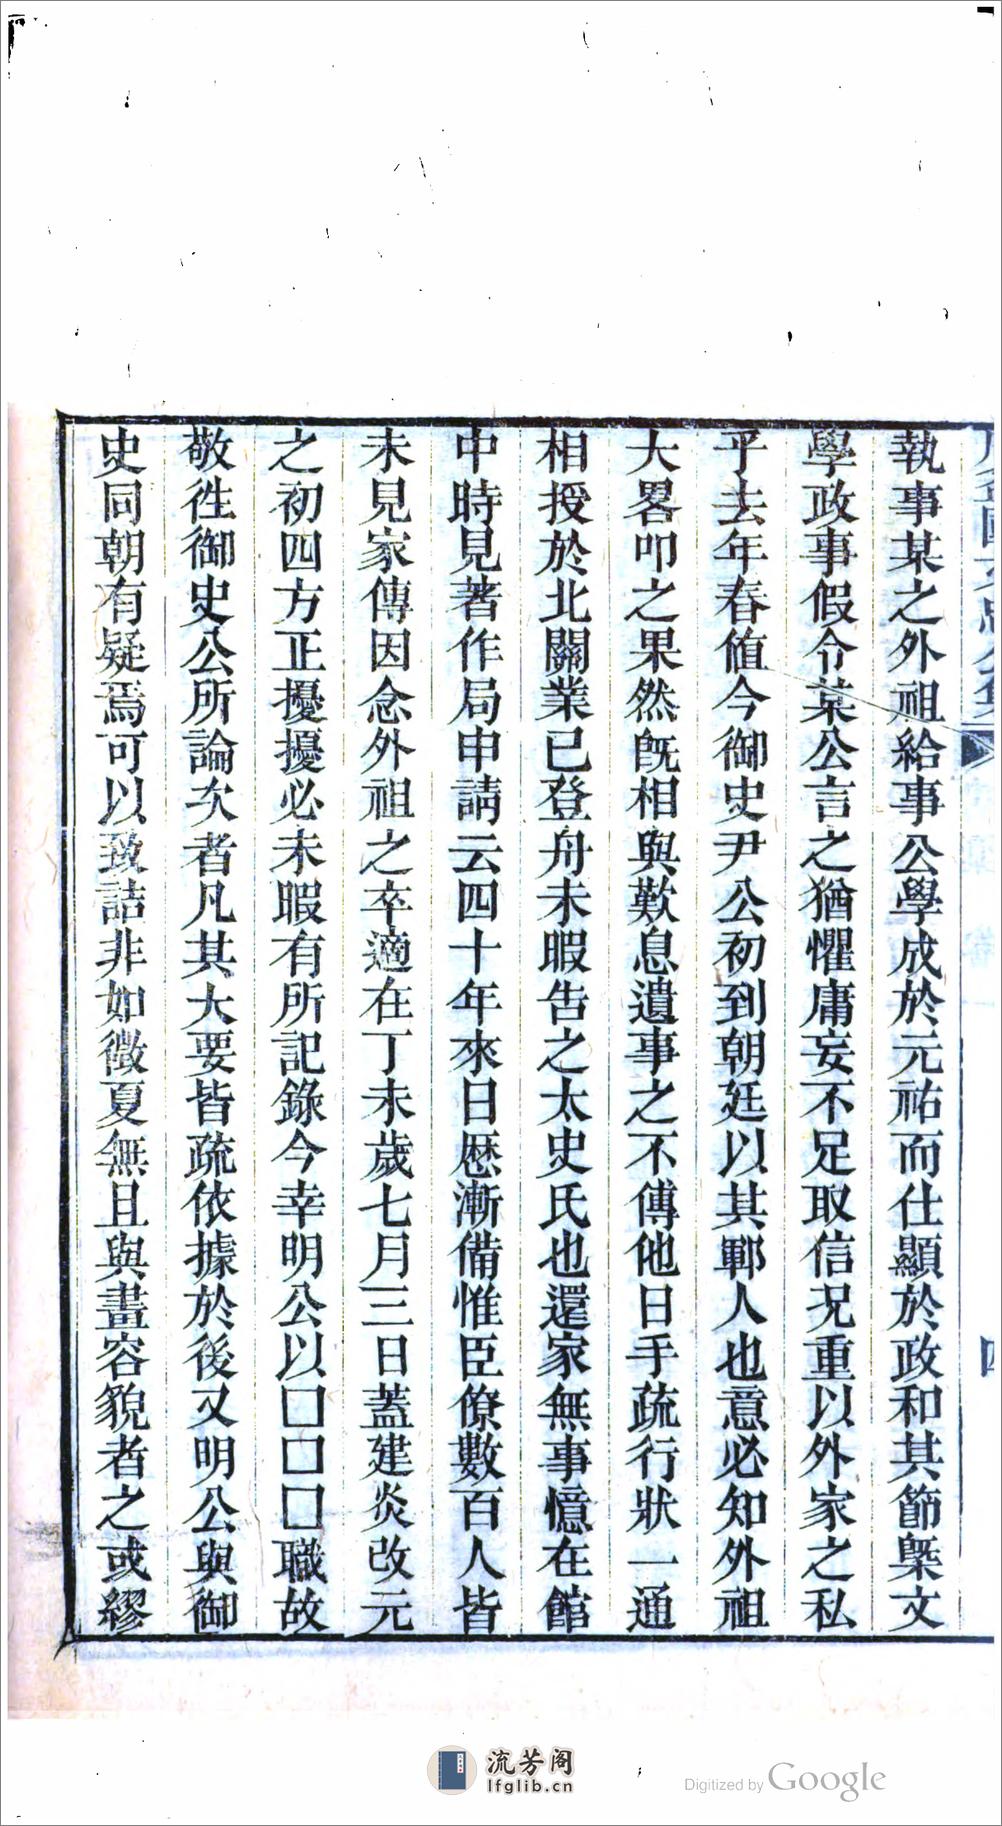 執事某之外祖給事公學成於元祐而仕顯於政和其節槩文
學政事假令某公言之猶懼庸妄不足取信況重以外家之私
乎去年春値今御史尹公初到朝廷以其鄆人也意必知外祖
大畧叩之果然旣相與歎息遺事之不傳他日手疏行狀一通
相授於北關業已登舟未暇告之太史氏也還家無事憶在館
中時見著作局申請云四十年來日厯漸備惟臣僚數百人皆
未見家傳因念外祖之卒適在丁未歲七月三日蓋建炎改元
之初四方正擾擾必未暇有所記錄今幸明公以□□□職故
敬徃御史公所論次者凡其大要皆疏依據於後又明公與御
史同朝有疑焉可以致詰非如徵夏無且與畫容貌者之或繆
四
流芳阁
lfglib.cn
Digitized by Google